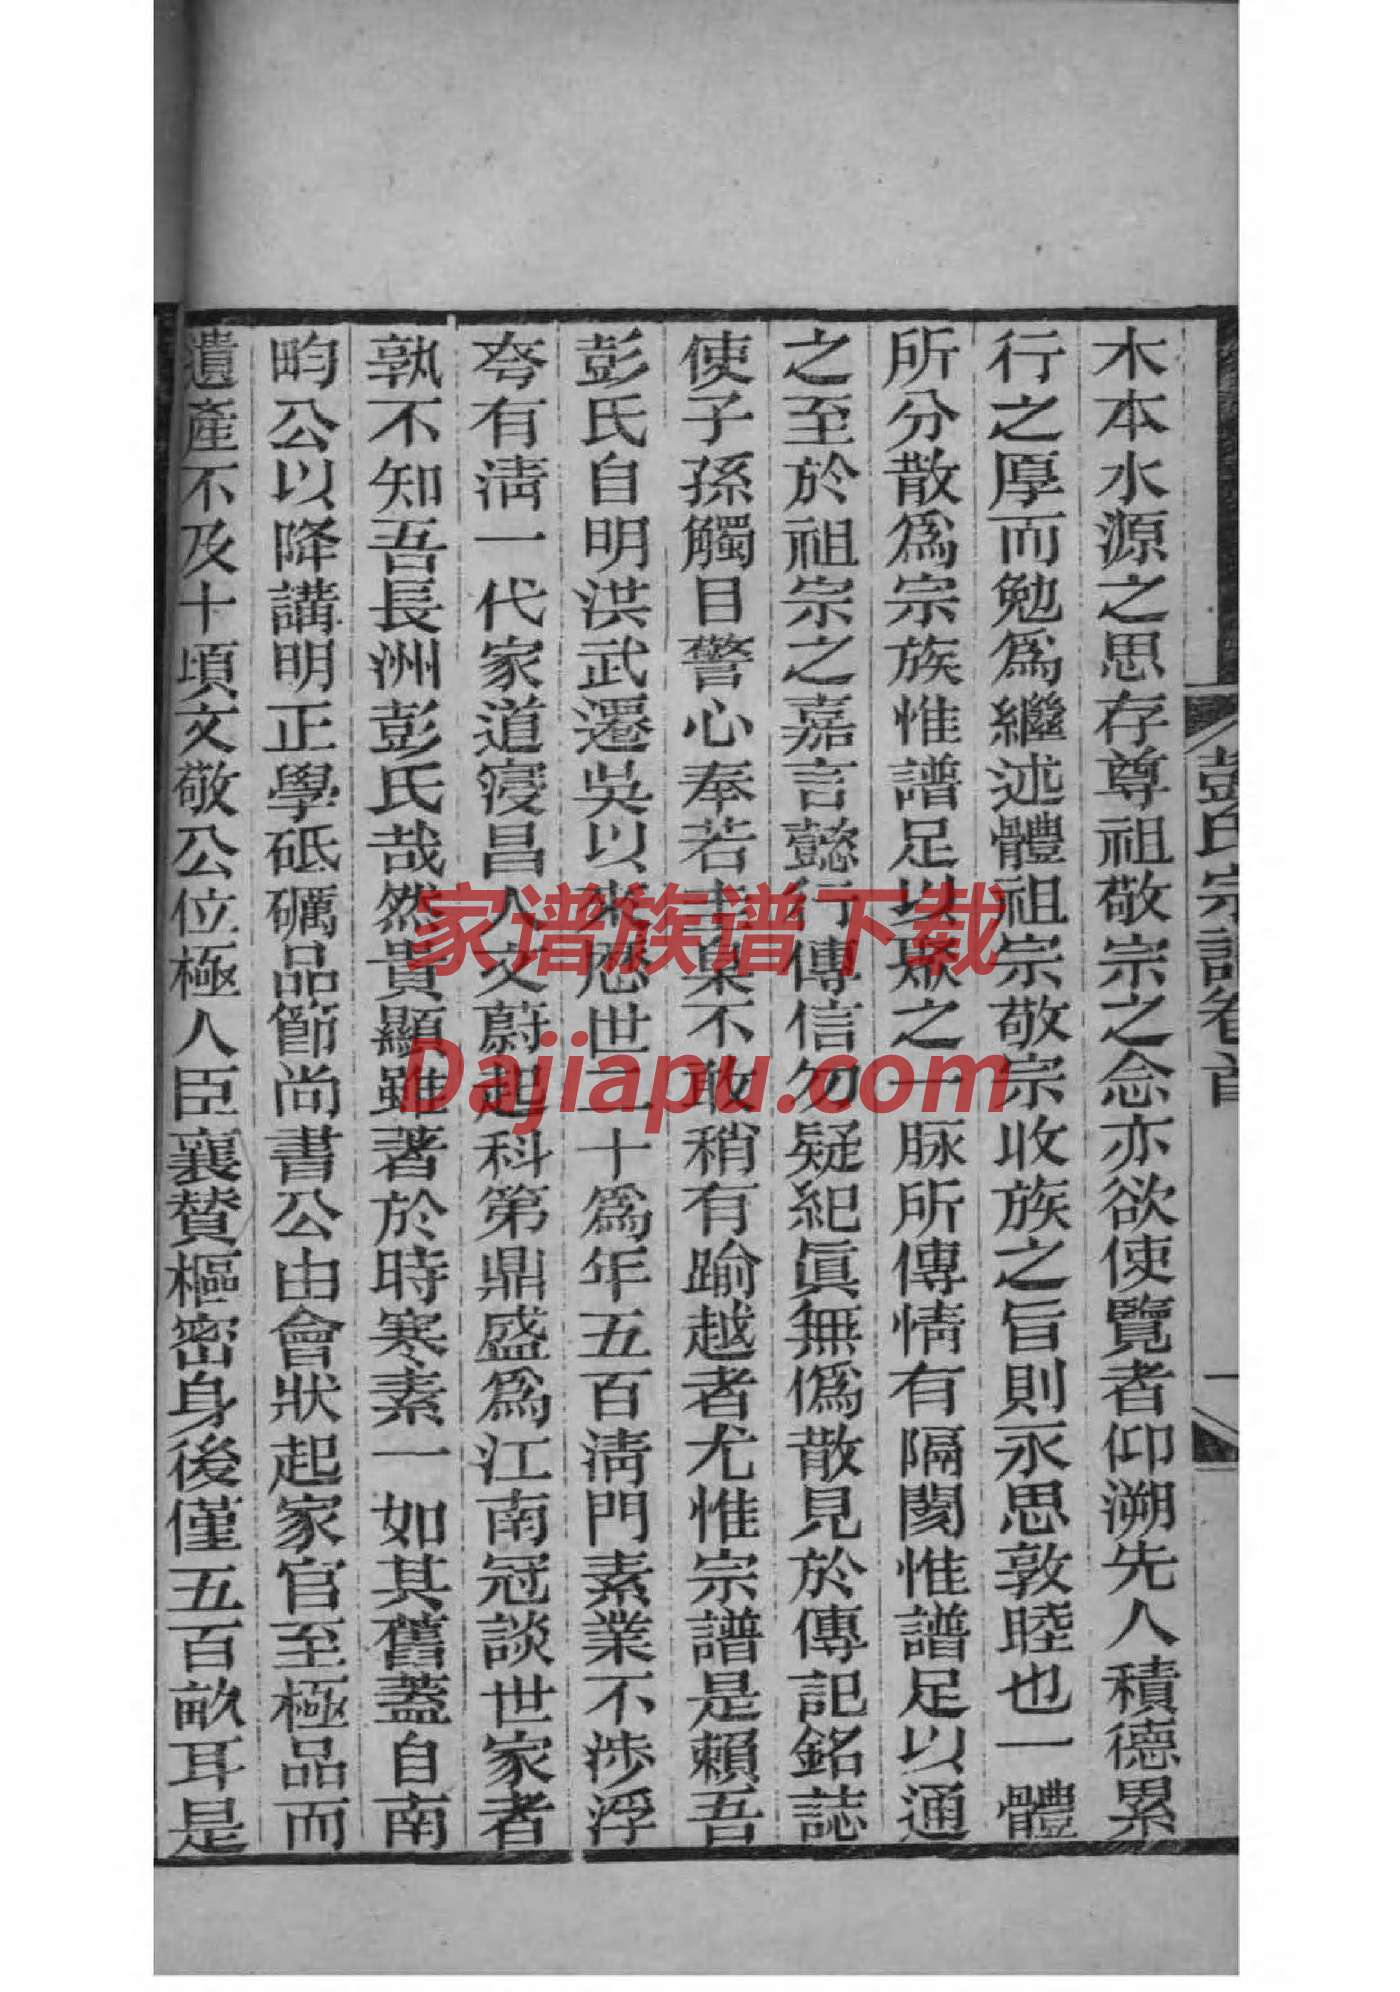 彭氏宗譜卷首
一
木本水源之思存尊祖敬宗之念亦欲使覽者仰溯先人積德累
行之厚而勉爲繼述體祖宗敬宗收族之旨則永思敦睦也一體
所分散爲宗族惟譜足以聚之一脉所傳情有隔閡惟譜足以通
之至於祖宗之嘉言懿行傳信勿疑紀眞無僞散見於傳記銘誌
使子孫觸目警心奉若圭臬不敢稍有踰越者尤惟宗譜是賴吾
彭氏自明洪武遷吳以來歷世二十爲年五百淸門素業不涉浮
夸有淸一代家道寖昌人文蔚起科第鼎盛爲江南冠談世家者
孰不知吾長洲彭氏哉然貴顯雖著於時寒素一如其舊蓋自南
畇公以降講明正學砥礪品節尚書公由會狀起家官至極品而
遺產不及十頃文敬公位極人臣襄贊樞密身後僅五百畝耳是
家谱族谱下载
Dajiapu.com